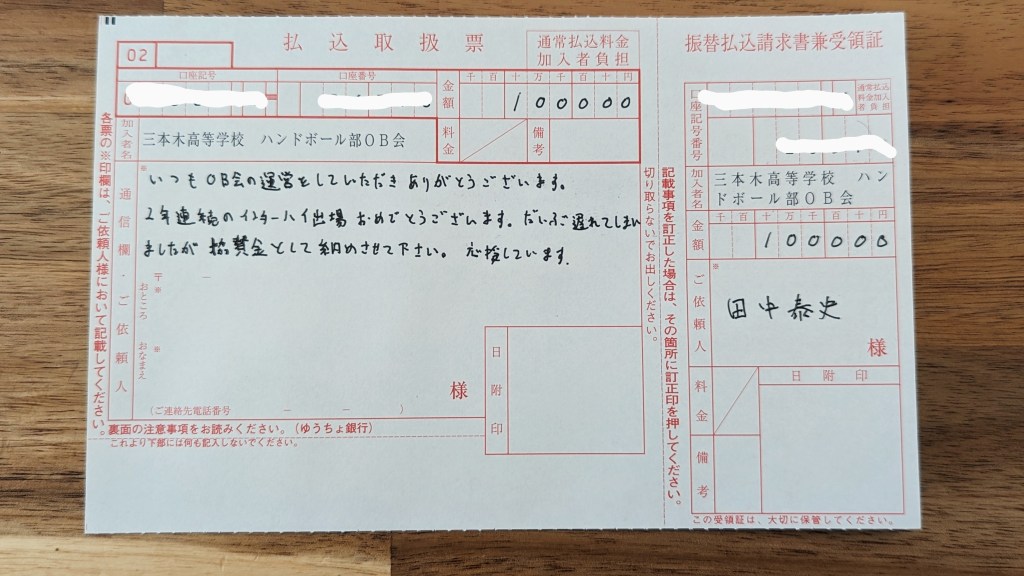 02
払込取扱票
通常払込料金
加入者負担
口座記号
口座番号
金額
千 百 十 万 千 百 十 円
1 0 0 0 0 0
料金
備考
加入者名
三本木高等学校 ハンドボール部OB会
※
いつもOB会の運営をしていただきありがとうございます。
2年連続のインターハイ出場 おめでとうございます。だいぶ遅れてしまい
ましたが 協賛金として納めさせて下さい。 応援しています.
通信欄・ご依頼人
〒 ー
※
おところ
おなまえ
※
様
(ご連絡先電話番号 ー ー )
日附印
裏面の注意事項をお読みください。(ゆうちょ銀行)
これより下部には何も記入しないでください。
各票の※印欄は、ご依頼人様において記載してください。
切り取らないでお出しください。
記載事項を訂正した場合は、その箇所に訂正印を押してください。
振替払込請求書兼受領証
口座記号番号
通常払込
料金加入
者負担
加入者名
三本木高等学校 ハン
ドボール部OB会
金額
千 百 十 万 千 百 十 円
1 0 0 0 0 0
ご依頼人
※
田中泰史
様
料金
日附印
備考
この受領証は、大切に保管してください。